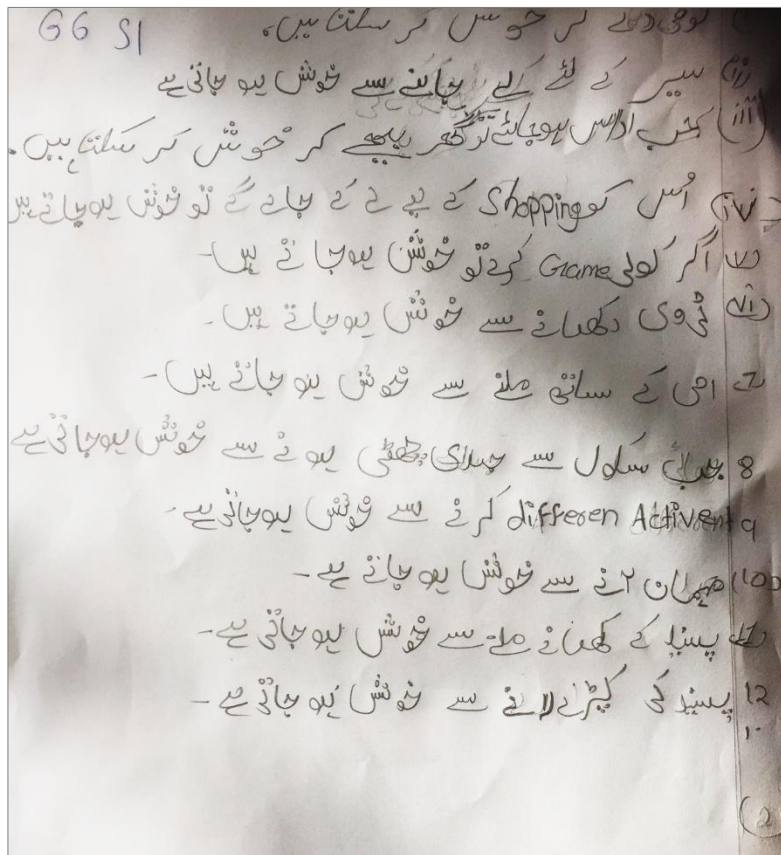 G6 S1
کر خوش کر سکتا ہیں.
(ii) سیر کے لئے کے جانے سے خوش ہو جاتی ہے
(iii) جب اداس ہو جائے تو گھر بھیجے کر خوش کر سکتا ہیں.
(iv) اُس کو Shopping کے لے کے جاے گے تو خوش ہو جاتے ہیں
(v) اگر کوئی Game کرے تو خوش ہو جاتے ہیں-
(vi) ٹی وی دکھانے سے خوش ہو جاتے ہیں-
7 امی کے ساتھ ملنے سے خوش ہو جاتے ہیں-
8 سکول سے جلدی چھٹی ہونے سے خوش ہو جاتی ہے
9 differen Activent کرنے سے خوش ہو جاتی ہے-
10 مہمان آنے سے خوش ہو جاتے ہے-
پسند کے کھانے ملنے سے خوش ہو جاتی ہے-
12 پسند کی کپڑے لانے سے خوش ہو جاتی ہے-
(2)